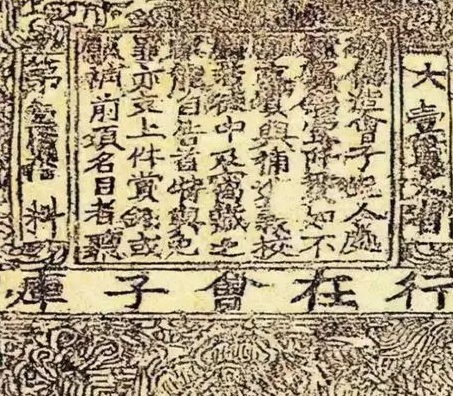 大壹貫文省
敕偽造會子犯人處
斬賞錢壹阡貫如不
願支賞與補進義校
尉若徒中及窩藏之
家能自告首特與免
罪亦支上件賞錢或
願補前項名目者聽
第壹料
行在會子庫